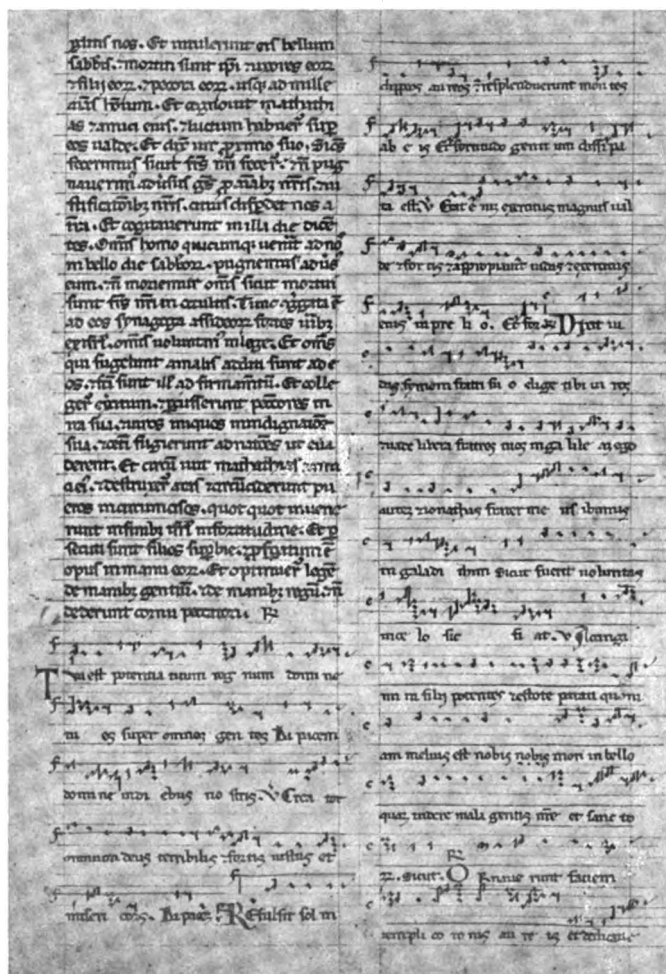 ximus nos. Et intulerunt eis bellum
sabbis. ⁊ mortui sunt ipi ⁊ uxores eorum
⁊ filij eorum. ⁊ pecora eorum. usq; ad mille
Et cognouit mathathi
as ⁊ amici eius. ⁊ luctum habuer sup
eos ualde. Et dix uir proximo suo. Si oms
fecerimus sicut frs nri fecer. ⁊ non pug
nauerim
stificationibz nris. citius disperdet nos a
tra. Et cogitauerunt in illa die dicen
tes. Omnis homo quicumq; uenerit ad nos
in bello die sabbor. pugnemus aduersus
eum. ⁊ non moriemur oms sicut mortui
sunt frs nri in occultis. Tunc cggata e
ad eos synagoga assideor fortis uiribz
ex isrl. omis uoluntari in lege. Et oms
qui fugiebant a malis additi sunt ad e
os. ⁊ fci sunt ill ad firmamtu. Et colle
ger exercitum. ⁊ pcusserunt peccatores in
ira sua. ⁊ uiros iniquos in indignatione
sua. ⁊ ceteri fugierunt ad nationes ut eua
derent. Et circuiuit mathathias ⁊ ami
ci ei. ⁊ destruxer aras ⁊ circumciderunt pu
eros incircumcisos. quot quot inuene
runt in finibz isrl in fortitudine. Et p
secuti sunt filios supbie. ⁊ psperatum e
opus in manu eorum. Et optinuer legem
de manibz gentium. ⁊ de manibz regum. ⁊ non
dederunt cornu peccatori. R
Tua est potentia tuum reg num domi ne
tu es super omnes gen tes Da pacem
domi ne in di ebus no stris. V Crea tor
omnium deus terribilis ⁊ fortis iustus et
miseri cors. Da pacem. Refulsit sol in
clipeos au reos ⁊ resplenduerunt mon tes
ab e is Et fortitudo genti um dissipa
ta est. V Erat e nim exercitus magnus ual
de ⁊ for tis ⁊ appropiauit iudas ⁊ exercitus
eius in pre li o. Et for Dixit iu
das symoni fratri su o elige tibi ui ros
⁊ uade libera fratres tuos in ga lile a ego
autem ⁊ ionathas frater me us ibimus
in galadi thim Sicut fuerit uoluntas
in ce lo sic fi at. V Accingi
mi ni filij potentes ⁊ estote parati quoni
am melius est nobis nobis mori in bello
quam uidere mala gentis nre et sanc to
rum. Sicut. R Ornaue runt faciem
templi co ro nis au re is et dedicaue